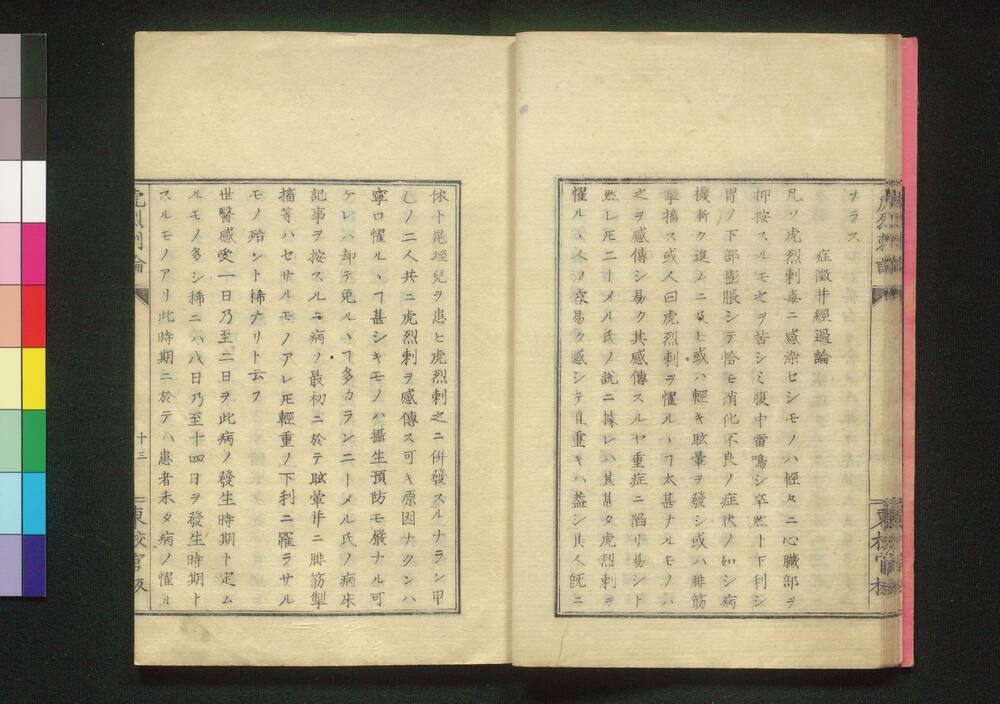 虎烈刺論
ナラス
症徴并經過論
凡ソ虎烈刺毒ニ感染セシモノハ輕々ニ心臓部ヲ
抑按スルモ之ヲ苦シミ腹中雷鳴シ卒然ト下利シ
胃ノ下部膨脹シテ恰モ消化不良ノ症状ノ如シ病
機漸ク進ムニ及ヒ或ハ輕キ眩暈ヲ發シ或ハ腓筋
搫搐ス或人曰虎烈刺ヲ懼ルヽヿ太甚ナルモノハ
之ヲ感傳シ易ク其感傳スルヤ重症ニ陷リ易シト
然レ𪜈ニーメル氏ノ説ニ據レハ其甚タ虎烈刺ヲ
懼ルヽ人ノ容易ク感シテ且重キハ蓋シ其人既ニ
東校官板
依ト昆垤兒ヲ患ヒ虎烈刺之ニ併發スルナラン甲
乙ノ二人共ニ虎烈刺ヲ感傳ス可キ原因ナクンハ
寧ロ懼ルヽヿ甚シキモノハ攝生預防モ嚴ナル可
ケレハ却テ免ルヽヿ多カランニーメル氏ノ病床
記事ヲ按スルニ病ノ最初ニ於テ眩暈并ニ腓筋掣
搐等ハセサルモノアレ𪜈輕重ノ下利ニ罹ラサル
モノ殆ント稀ナリト云フ
世醫感受一日乃至二日ヲ此病ノ發生時期ト定ム
ルモノ多シ稀ニハ八日乃至十四日ヲ發生時期ト
スルモノアリ此時期ニ於テハ患者未タ病ノ懼ル
虎烈刺論
十三
東校官板